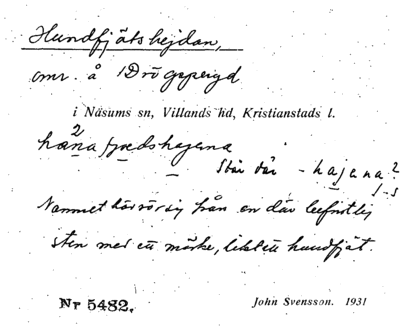 Hundfjätshejdan,
omr. å Drögsperyd
i Näsums sn, Villands hd, Kristianstads l.
2
Står där - hajana?
Namnet härrör sig från en där befintlig
sten med ett märke, likt ett hundfjät.
Nr 5482. John Svensson. 1931